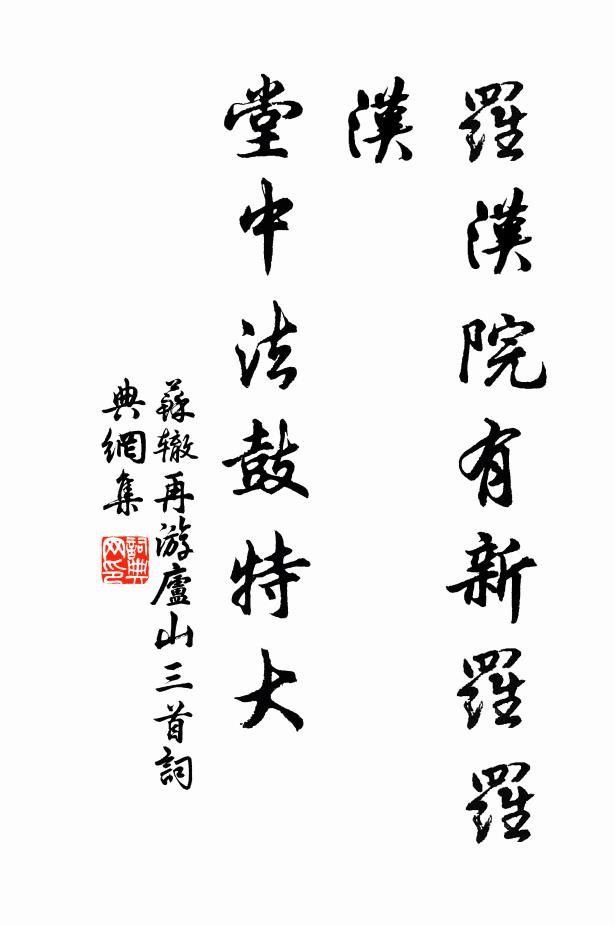 羅漢院有新羅羅
漢
堂中法鼓特大
蘇辙再游廬山三首詞
典網集
詞典
网印